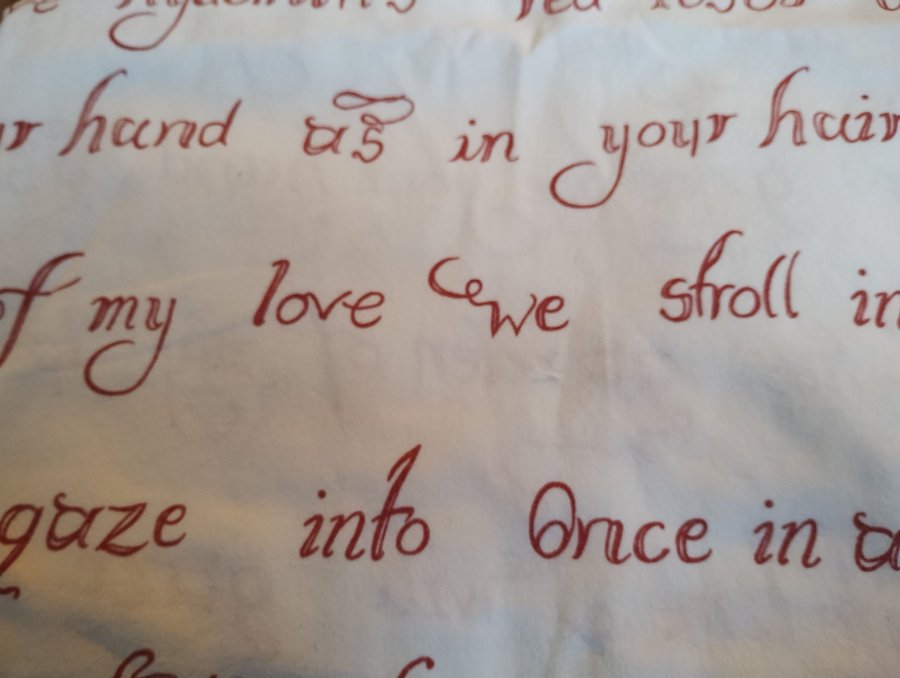 red roses
hand as in your hair
of my love we stroll in
gaze into Once in a